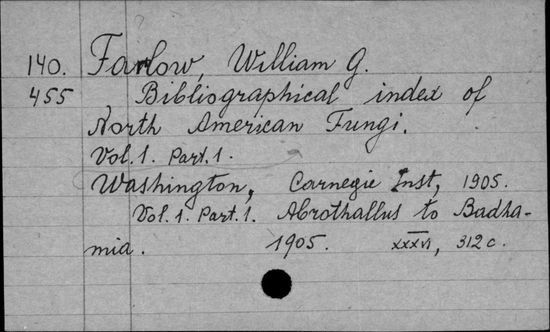 140. Farlow, William G.
455 Bibliographical index of
North American Fungi.
Vol.1. Part.1.
Washington, Carnegie Inst, 1905.
Vol.1. Part.1. Abrothallus to Badha-
mia. 1905. xxxvi, 312 c.